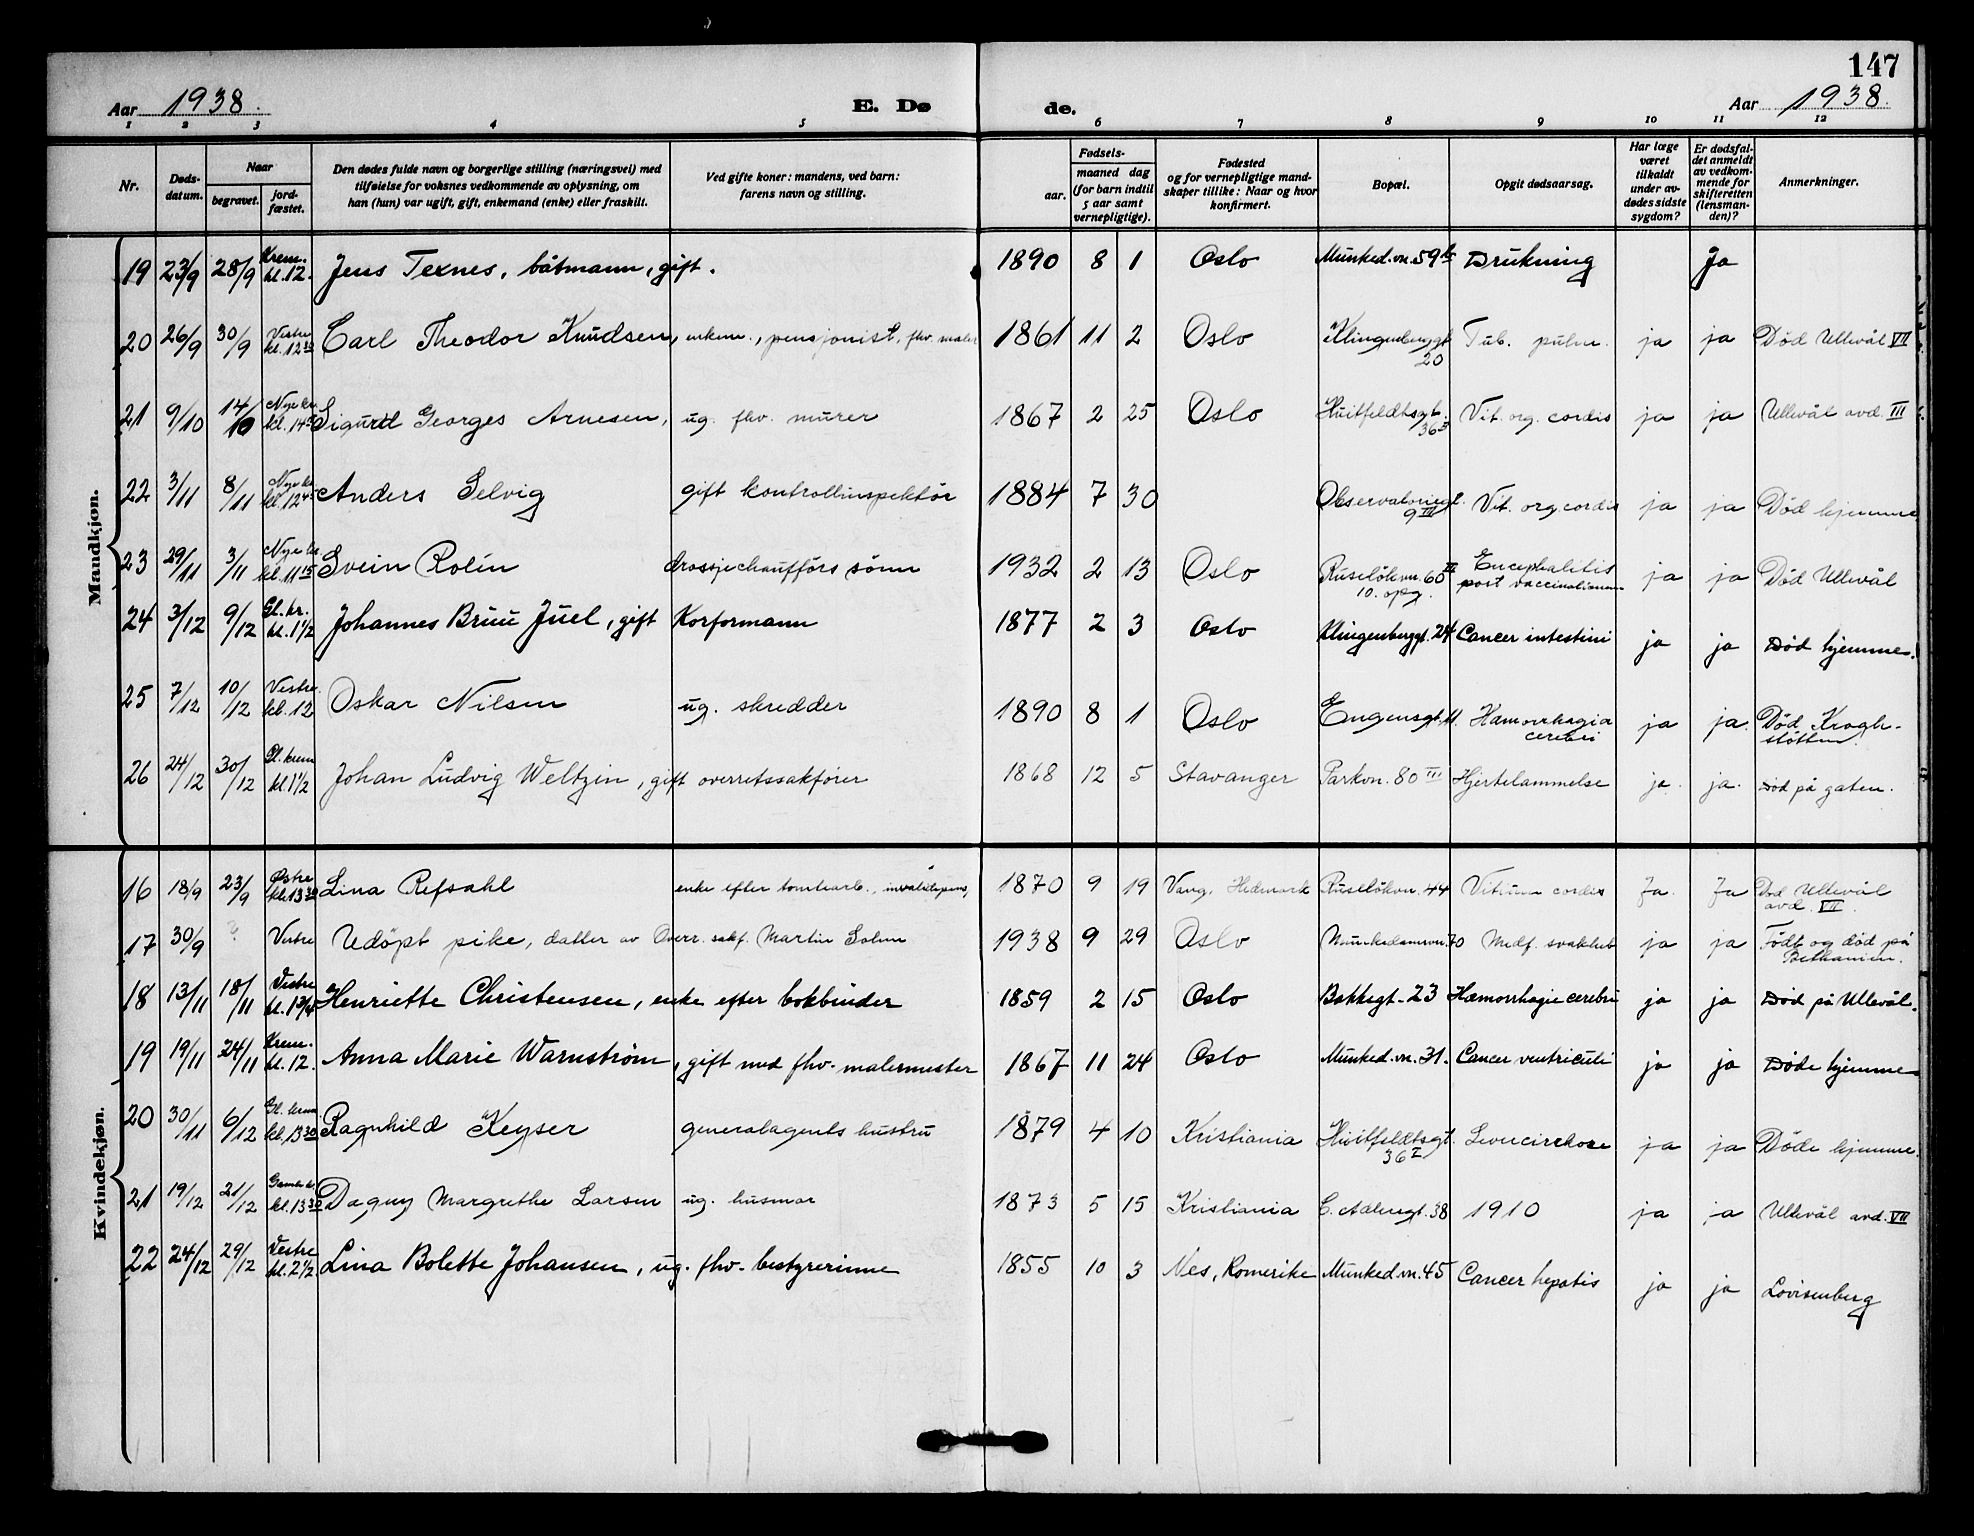 147
Aar 1938. E. Dø de. Aar 1938.
1 2 3 4 5 6 7 8 9 10 11 12
Nr. Døds-datum. Naar begravet. jord-fæstet. Den dødes fulde navn og borgerlige stilling (næringsvei) med tilføielse for voksnes vedkommende av oplysning, om han (hun) var ugift, gift, enkemand (enke) eller fraskilt. Ved gifte koner: mandens, ved barn: farens navn og stilling. Fødsels- aar. maaned dag (for barn indtil 5 aar samt vernepligtige). Fødested og for vernepligtige mand-skaper tillike: Naar og hvor konfirmert. Bopæl. Opgit dødsaarsag. Har læge været tilkaldt under av-dødes sidste sygdom? Er dødsfal-det anmeldt av vedkom-mende for skifteretten (lensman-den)? Anmerkninger.
Mandkjøn.
19 23/9 28/9 Krem. kl. 12. Jens Texnes, båtmann, gift. 1890 8 1 Oslo Munked.vn. 59 Drukning Ja
20 26/9 30/9 Vestre kl. 12 Carl Theodor Knudsen, enkem., pensjonist, fhv. maler 1861 11 2 Oslo Klingenberggt 20 Tub. pulm. ja ja Död Ullevål VII
21 9/10 14/10 Nye kr. kl. 14 Sigurd Georges Arnesen, ug. fhv. murer 1867 2 25 Oslo Huitfeldtsgt. 36 Vit. org. cordis ja ja Ullevål avd. III
22 3/11 8/11 Nye kr. kl. 12 45 Anders Selvig gift kontrollinspektör 1884 7 30 Observatoriegt. 9 III Vit. org. cordis ja ja Död hjemme
23 29/11 3/11 Nye kr. kl. 11 15 Svein Rolin drossjechaufförs sönn 1932 2 13 Oslo Ruselökvn. 60 III 10. opg. Encephalitis post vaccinationem ja ja Död Ullevål
24 3/12 9/12 Gl. kr. kl. 1 1/2 Johannes Bruu Juel, gift Korformann 1877 2 3 Oslo Klingenberggt. 24 Cancer intestini ja ja Död hjemme.
25 7/12 10/12 Vestre kl. 12 Oskar Nilsen ug. skredder 1890 8 1 Oslo Eugensgt. 11. Hæmorrhagia cerebri ja ja. Död Krogh-støtten.
26 24/12 30/12 Gl. krem kl. 1 1/2 Johan Ludvig Weltzin, gift overretssakfører 1868 12 5 Stavanger Parkvn. 80 III Hjertelammelse ja. ja. Död på gaten.
Kvindekjøn.
16 18/9 23/9 Østre kl. 13 30 Lina Refsahl enke efter tomtearb., invalidepens, 1870 9 19 Vang, Hedmark Ruselökvn. 44 Vitium cordis Ja. Ja Död Ullevål avd. VII.
17 30/9 ? Vestre Udöpt pike, datter av Overr. sakf. Martin Solem 1938 9 29 Oslo Munkedamsvn. 70 Medf. svakhet ja ja Födt og död på Bethanien.
18 13/11 18/11 Vestre kl. 13 1/4 Henriette Christensen, enke efter bokbinder 1859 2 15 Oslo Bakkegt. 23 Hæmorrhagie cerebri ja ja Död på Ullevål.
19 19/11 24/11 Krem. kl. 12. Anna Marie Warnstrøm, gift med fhv. malermester 1867 11 24 Oslo Munked.vn. 31. Cancer ventriculi ja ja Döde hjemme
20 30/11 6/12 Gl. krem. kl. 13 30 Ragnhild Keyser generalagents hustru 1879 4 10 Kristiania Huitfeldtsgt. 36 I Levercirrhose ja ja Döde hjemme.
21 19/12 21/12 Gamle k. kl. 13 30 Dagny Margrethe Larsen ug. husmor 1873 5 15 Kristiania C. Adlersgt. 38 1910 ja ja Ullevål avd. VII
22 24/12 29/12 Vestre kl. 2 1/2. Lina Bolette Johansen, ug. fhv. bestyrerinne 1855 10 3 Nes, Romerike Munked.vn. 45 Cancer hepatis ja ja Lovisenberg